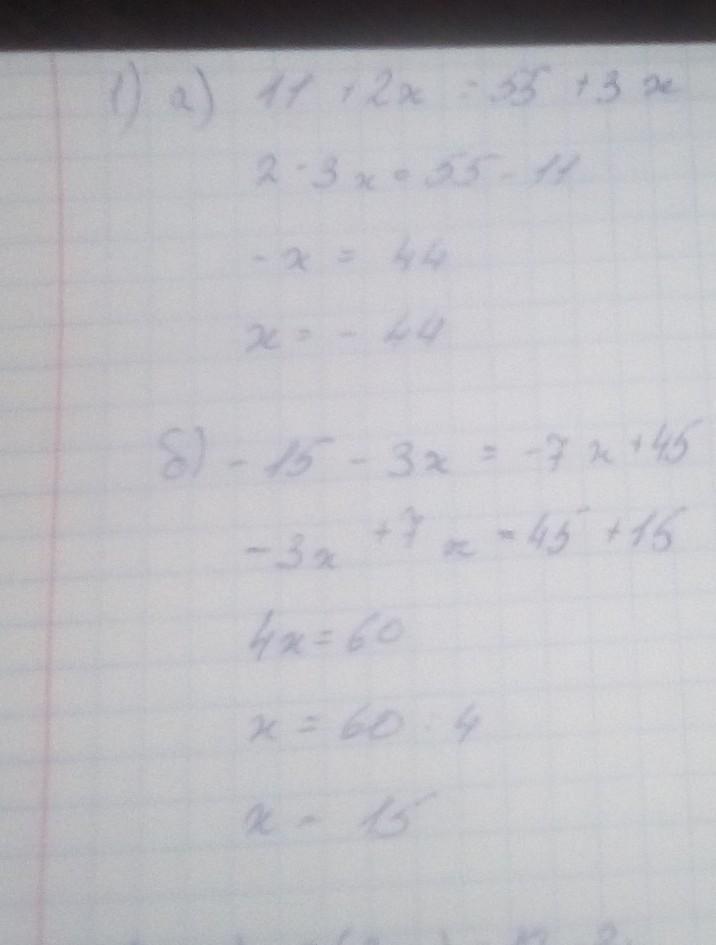 1) а) 11 + 2x = 55 + 3x
2 - 3x = 55 - 11
-x = 44
x = - 44
б) - 15 - 3x = -7x + 45
-3x + 7x = 45 + 15
4x = 60
x = 60 : 4
x - 15